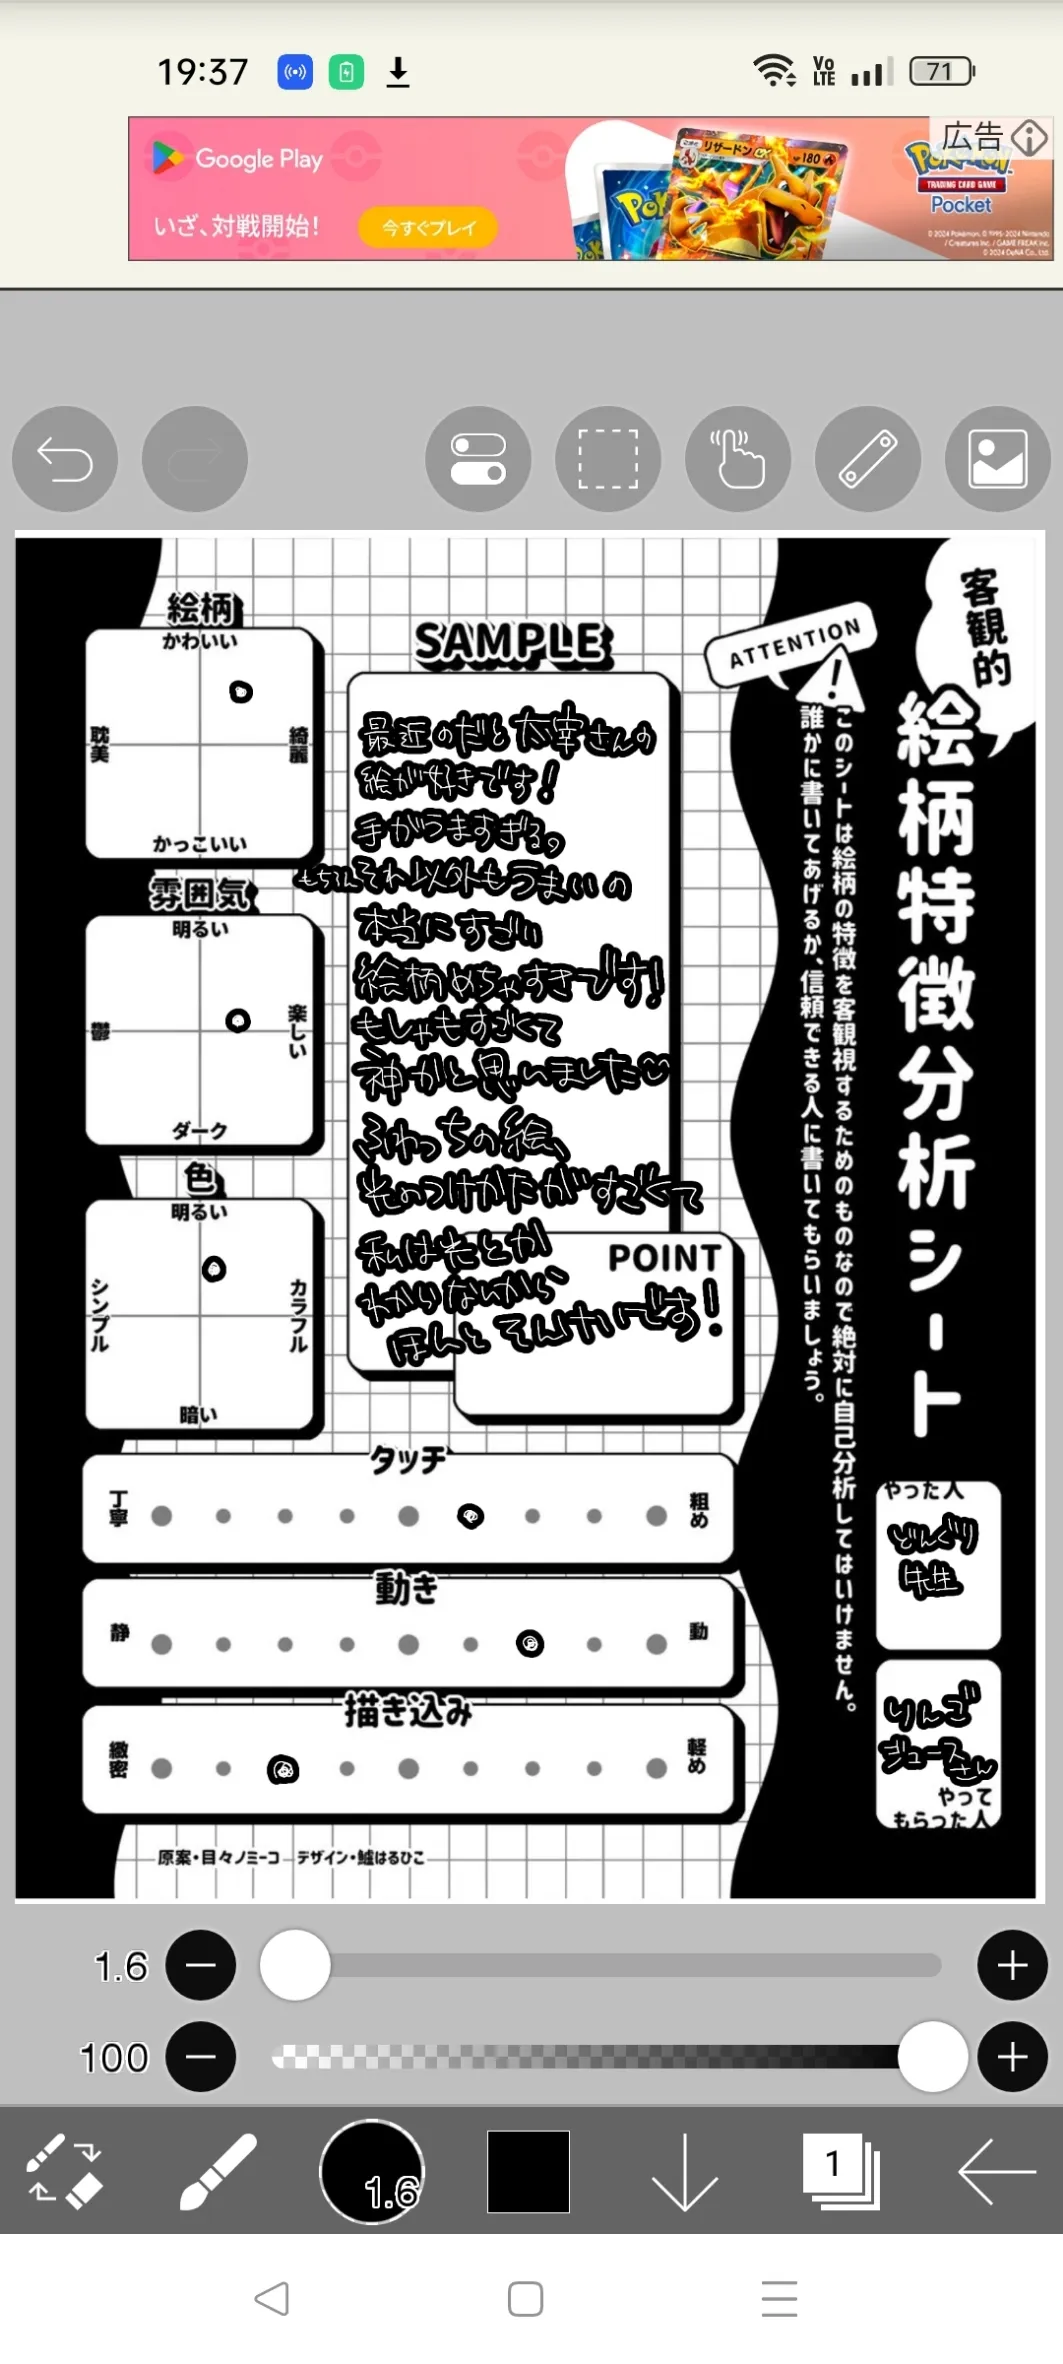 19:37
Vo
LTE
71
広告
Google Play
いざ、対戦開始!
今すぐプレイ
リザードン ex
180
Pokémon
TRADING CARD GAME
Pocket
客観的
絵柄特徴分析シート
ATTENTION
!
このシートは絵柄の特徴を客観視するためのものなので絶対に自己分析してはいけません。
誰かに書いてあげるか、信頼できる人に書いてもらいましょう。
絵柄
かわいい
耽美
綺麗
かっこいい
雰囲気
明るい
鬱
楽しい
ダーク
色
明るい
シンプル
カラフル
暗い
SAMPLE
最近のだと太宰さんの
絵が好きです!
手がうますぎる。
もちろんそれ以外もうまいの
本当にすごい
絵柄めちゃすきです!
もしゃもすごくて
神かと思いました♡
ふわっちの絵、
光のつけかたがすごくて
私は光とか
わからないから
ほんとそんけいです!
POINT
タッチ
丁寧
粗め
動き
静
動
描き込み
緻密
軽め
やった人
どんぐり
先生
りんご
ジュースさん
やって
もらった人
原案・目々ノミーコ デザイン・鱸はるひこ
1.6
100
1.6
1